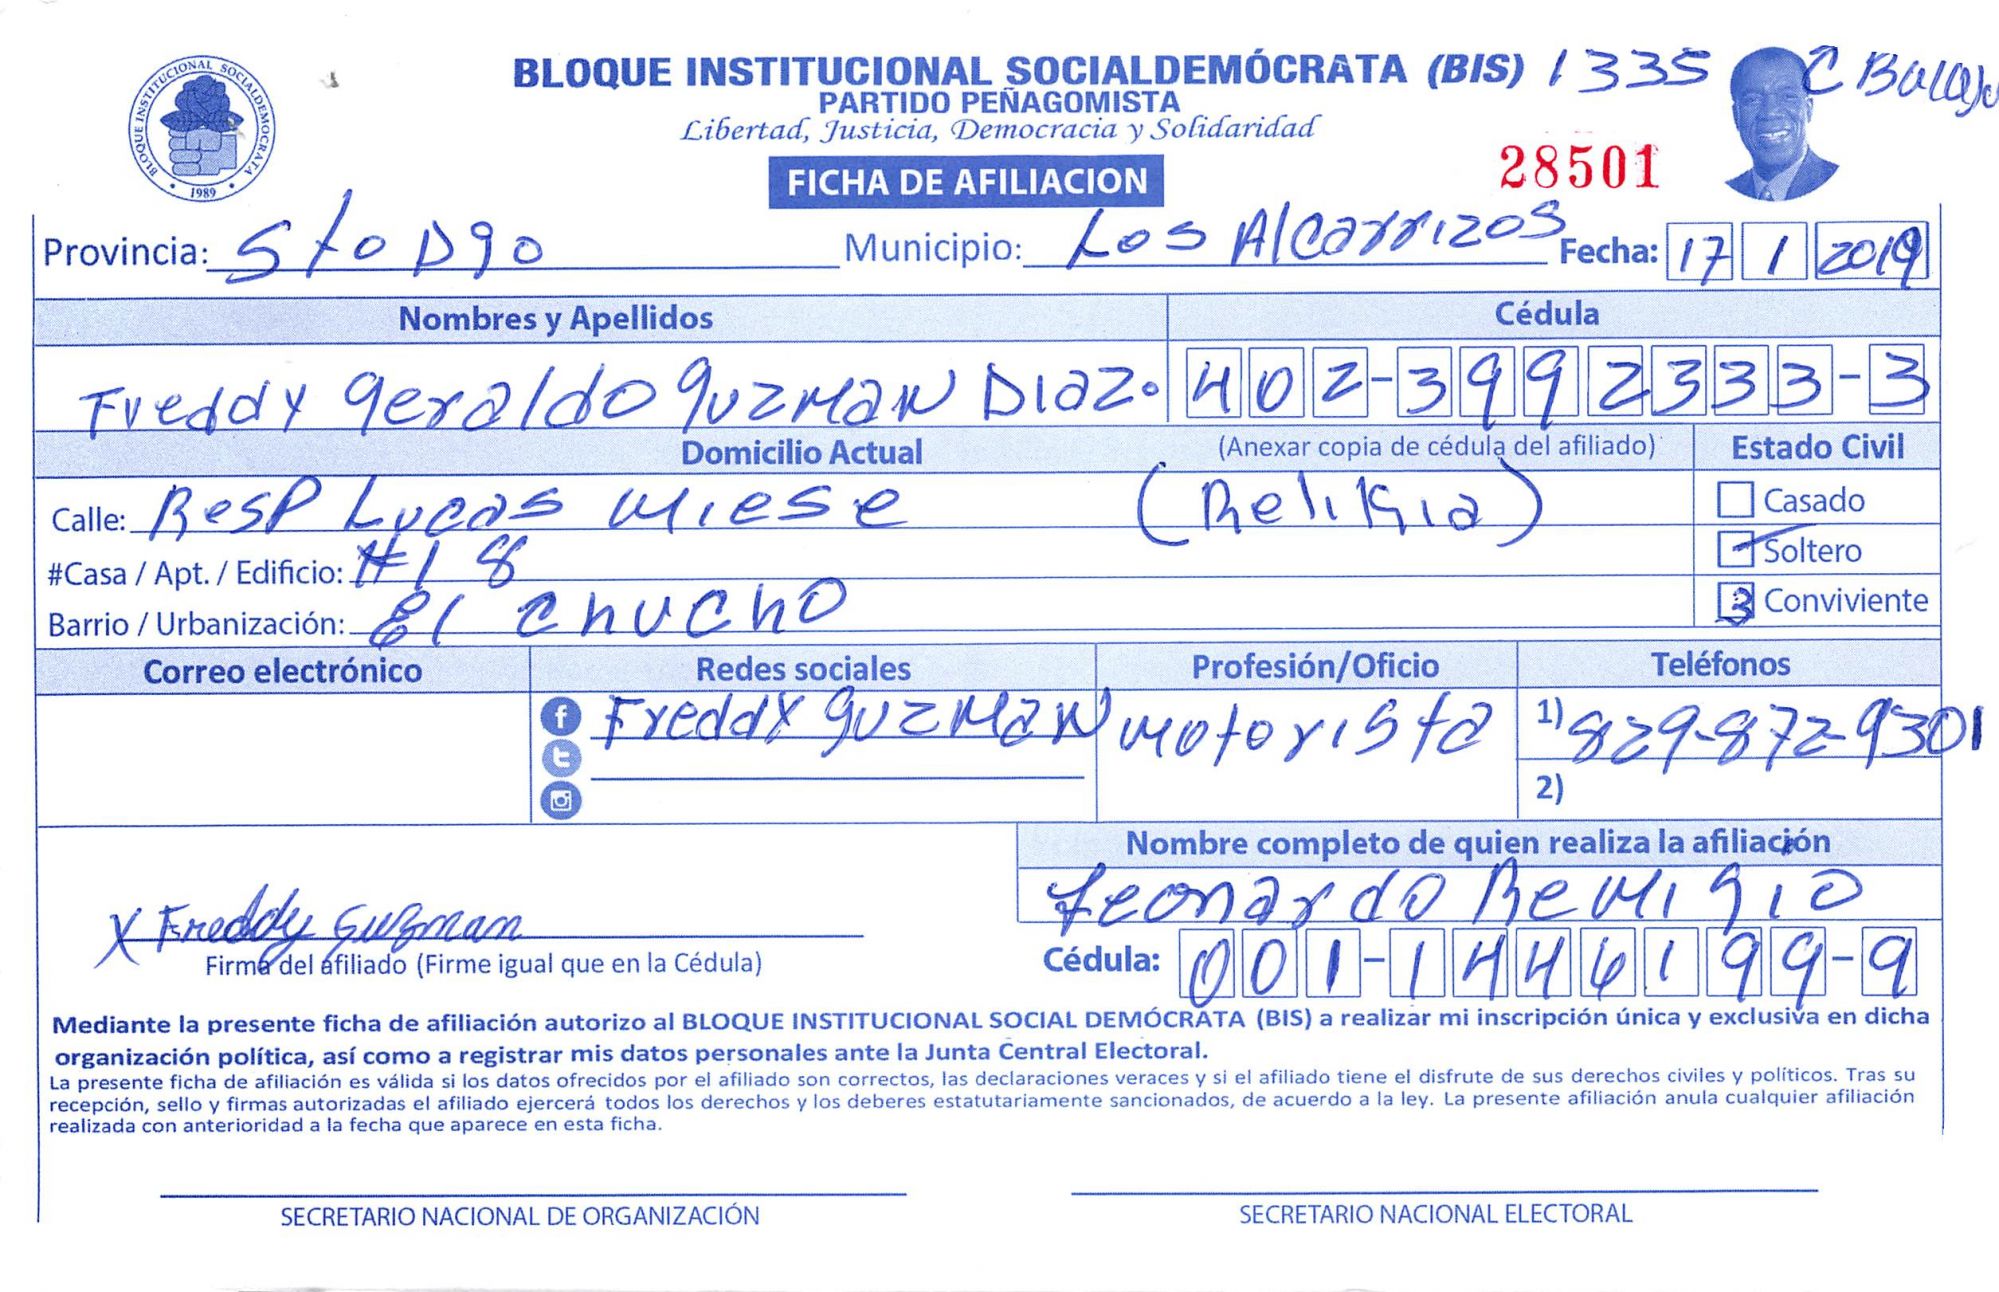 BLOQUE INSTITUCIONAL SOCIALDEMÓCRATA (BIS) 1335 C
PARTIDO PEÑAGOMISTA
Libertad, Justicia, Democracia y Solidaridad
BLOQUE INSTITUCIONAL SOCIALDEMOCRATA • 1989 •
FICHA DE AFILIACION
28501
Provincia: Sto Dgo Municipio: Los Alcarrizos Fecha: 17 1 2019
Nombres y Apellidos Cédula
Freddy Geraldo Guzman Diaz. 402-3992333-3
Domicilio Actual (Anexar copia de cédula del afiliado) Estado Civil
Calle: Resp Lucas Miese (Relikia) Casado
Soltero
#Casa / Apt. / Edificio: #18
Barrio / Urbanización: El Chucho Conviviente
Correo electrónico Redes sociales Profesión/Oficio Teléfonos
Freddy Guzman Motorista 1) 829-872-9301
2)
Nombre completo de quien realiza la afiliación
Leonardo Remigio
X Freddy Guzman
Firma del afiliado (Firme igual que en la Cédula) Cédula: 001-1446199-9
Mediante la presente ficha de afiliación autorizo al BLOQUE INSTITUCIONAL SOCIAL DEMÓCRATA (BIS) a realizar mi inscripción única y exclusiva en dicha
organización política, así como a registrar mis datos personales ante la Junta Central Electoral.
La presente ficha de afiliación es válida si los datos ofrecidos por el afiliado son correctos, las declaraciones veraces y si el afiliado tiene el disfrute de sus derechos civiles y políticos. Tras su
recepción, sello y firmas autorizadas el afiliado ejercerá todos los derechos y los deberes estatutariamente sancionados, de acuerdo a la ley. La presente afiliación anula cualquier afiliación
realizada con anterioridad a la fecha que aparece en esta ficha.
SECRETARIO NACIONAL DE ORGANIZACIÓN SECRETARIO NACIONAL ELECTORAL